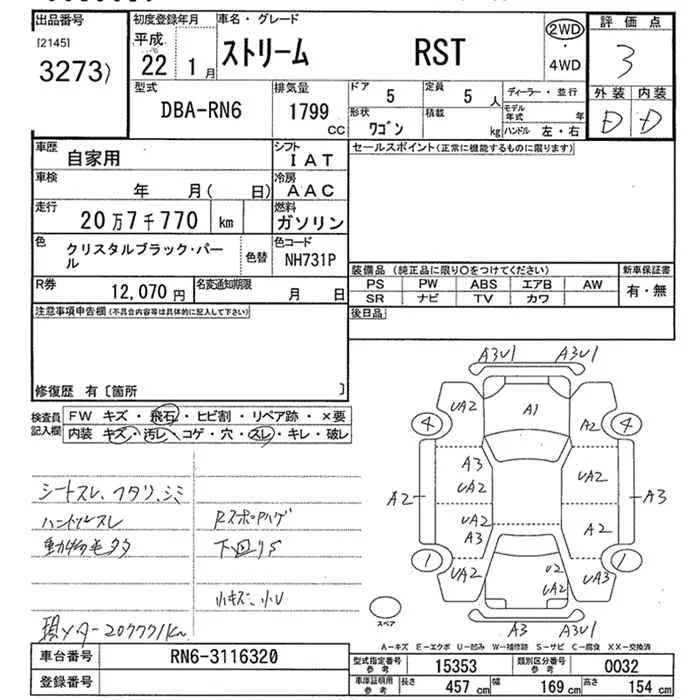 出品番号
初度登録年月
車名・グレード
2WD
評価点
[2145]
3273)
平成
22 1月
ストリーム RST
・
4WD
3
外装 内装
D D
型式
DBA-RN6
排気量
1799 CC
ドア 5
定員 5 人
ディーラー・並行
形状 ワゴン
積載 kg
モデル年式 年
ハンドル 左・右
車歴
自家用
シフト
IAT
セールスポイント(正常に機能するものに限ります)
車検
年 月( 日)
冷房
AAC
走行
20万7千770 km
燃料
ガソリン
色
クリスタルブラック・パール
色替
色コード
NH731P
装備品 (純正品に限り〇をつけてください)
新車保証書
PS PW ABS エアB AW
SR ナビ TV カワ
有・無
R券
12,070 円
名変通知期限
月 日
後日品
注意事項申告欄(不具合内容等は具体的に記入して下さい)
修復歴 有〔箇所 〕
検査員記入欄
FW キズ・飛石・ヒビ割・リペア跡・×要
内装 キズ・汚レ・コゲ・穴・スレ・キレ・破レ
シートスレ、ヘタリ、シミ
ハンドルスレ
動物毛多
下回りS
小キズ、小U
現メーター207771km
A3U1 A3U1
UA2 A1 A2
4 4
A3
UA2 UA2
A2 A3
UA2 A2
A3
1 1
UA2 U2 UA3
UA2
A3 A3U1
スペア
A-キズ E-エクボ U-凹み W-補修跡 S-サビ C-腐食 XX-交換済
車台番号
RN6-3116320
登録番号
型式指定番号 参考
15353
類別区分番号 参考
0032
車庫証明用 参考
長さ 457 cm
幅 169 cm
高さ 154 cm